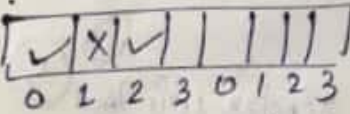 ✓ X ✓
0 1 2 3 0 1 2 3